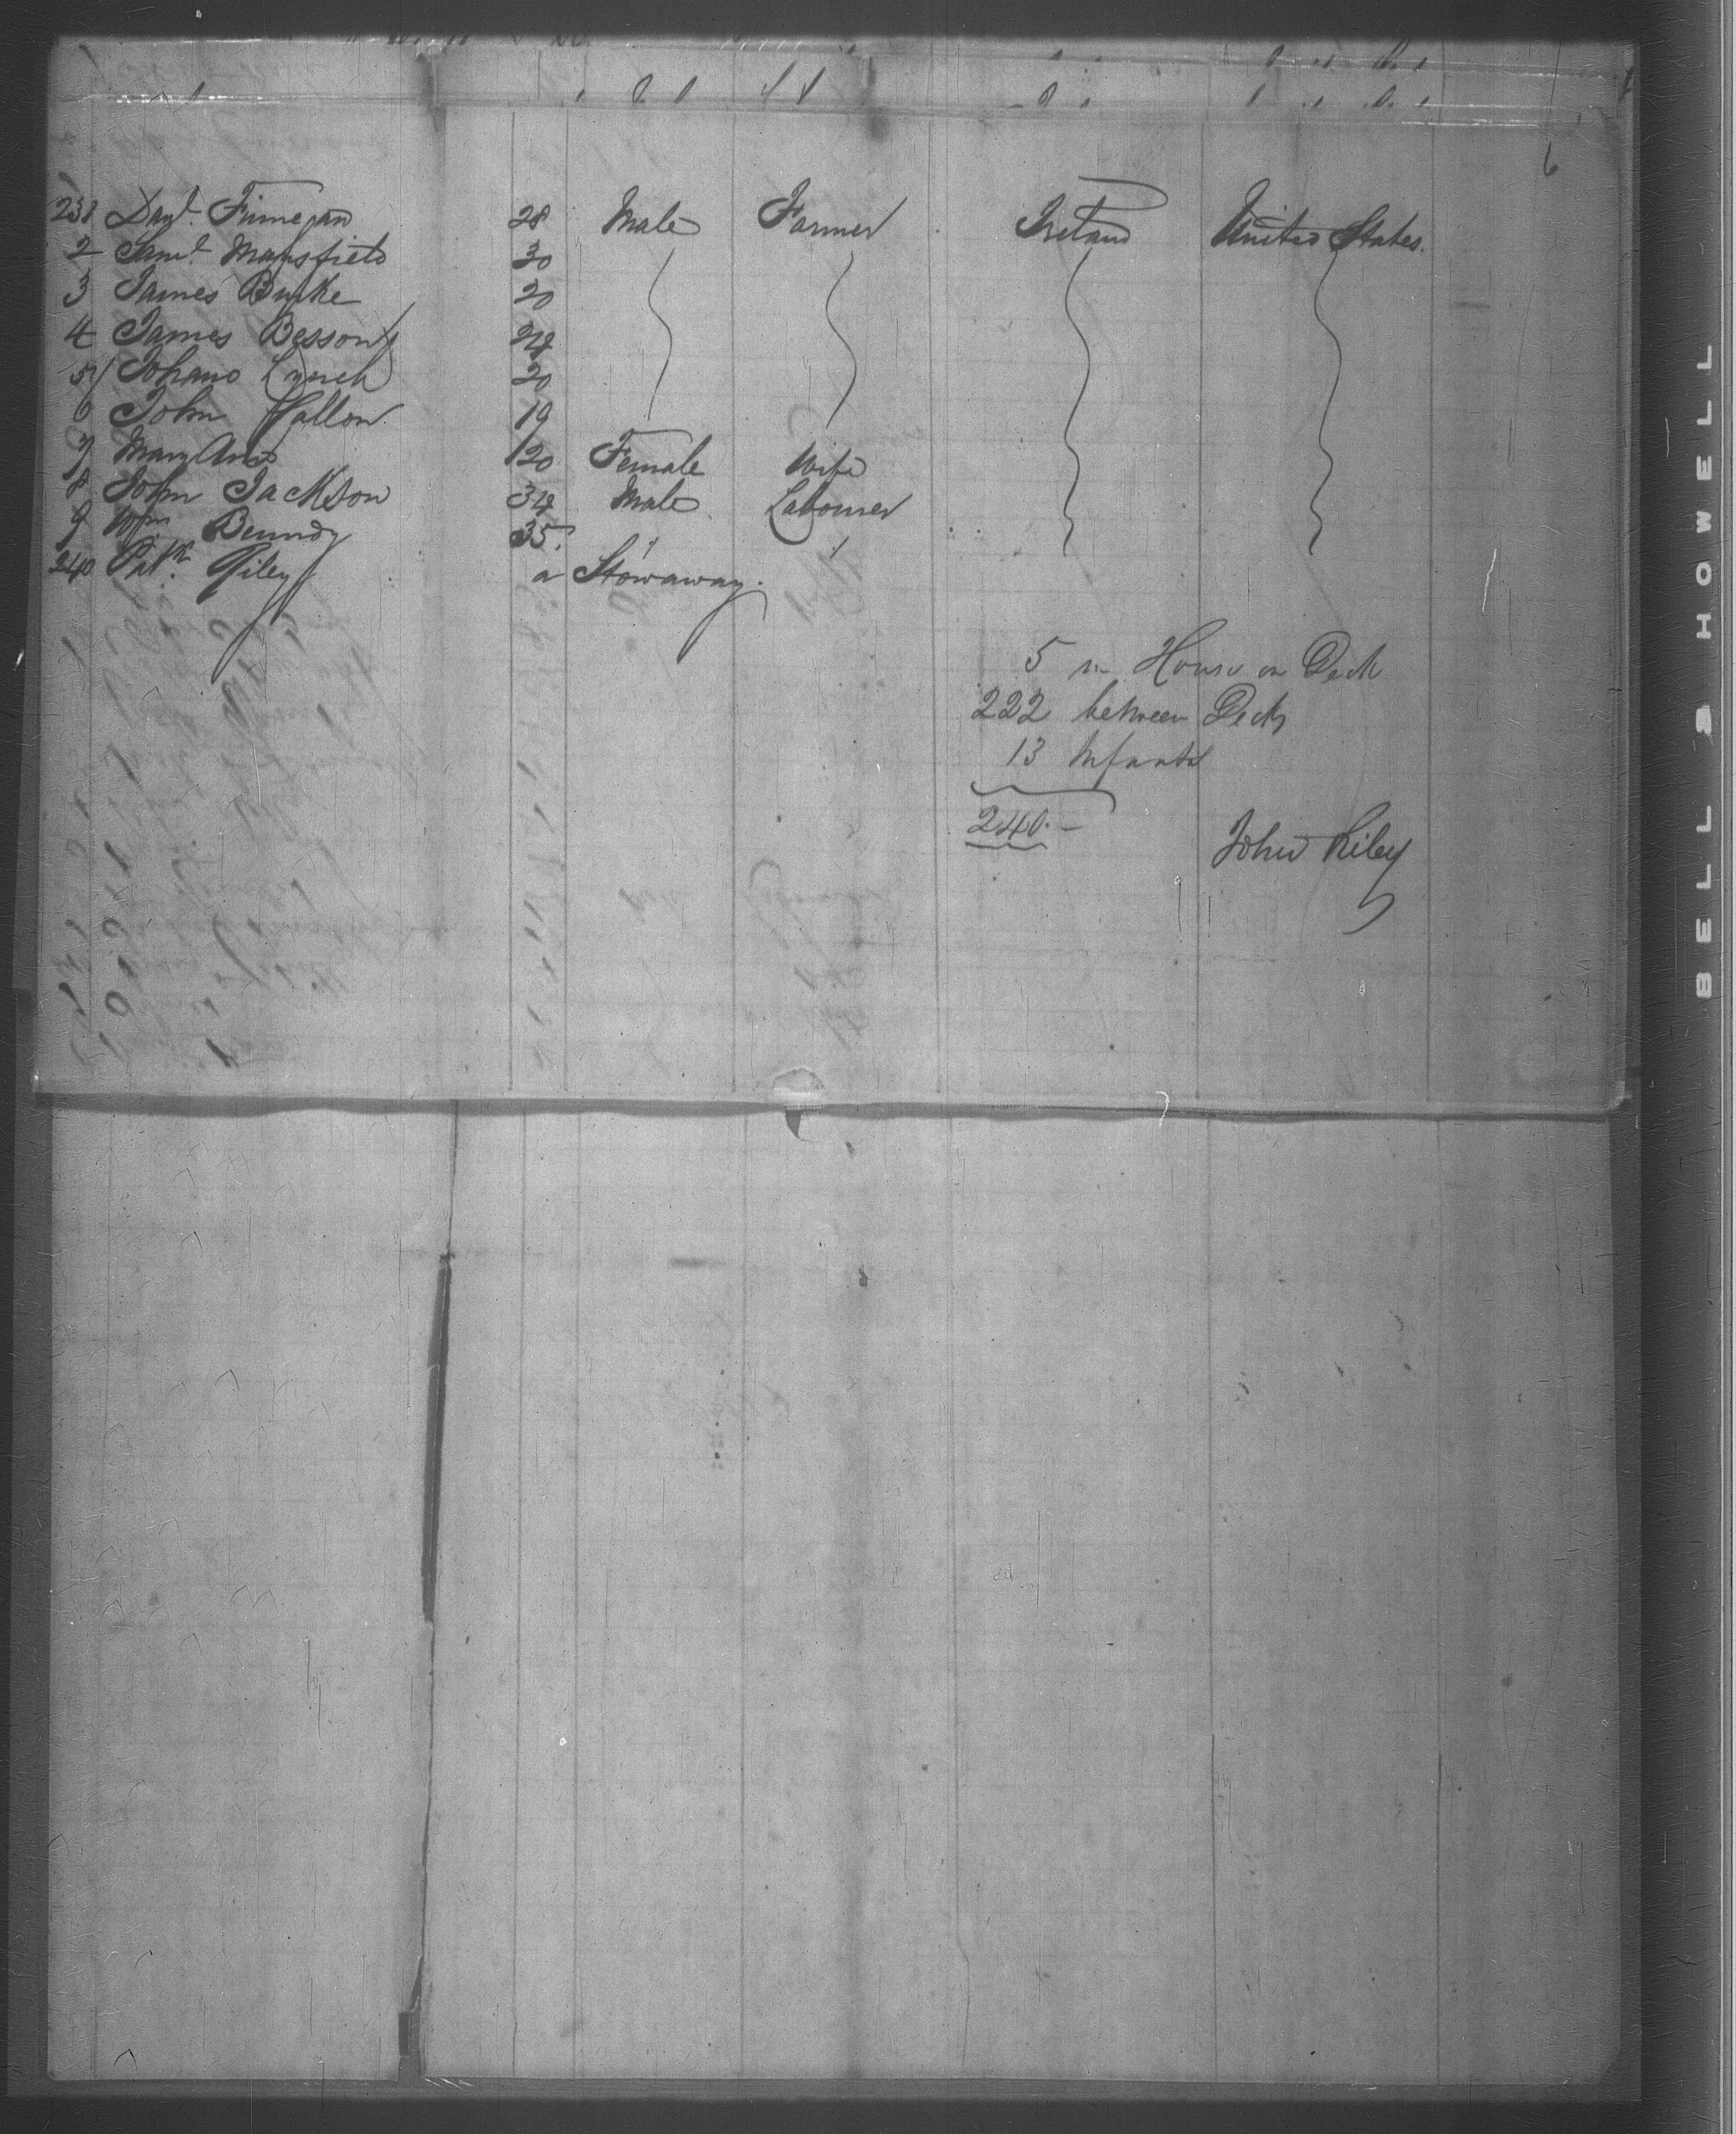 231 Danl. Finnegan 28 Male Farmer Ireland United States.
2 Saml. Mansfield 30
3 James Burke 20
4 James Bessony 24
5 Johano Lynch 20
6 John Hallon 19
7 Mary Ann 20 Female Wife
8 John Jackson 34 Male Labourer
9 Wm Benndy 35.
240 Patk. Riley a Stowaway.
5 in House on Deck
222 between Decks
13 Infants
240.-
John Riley
6
BELL & HOWELL